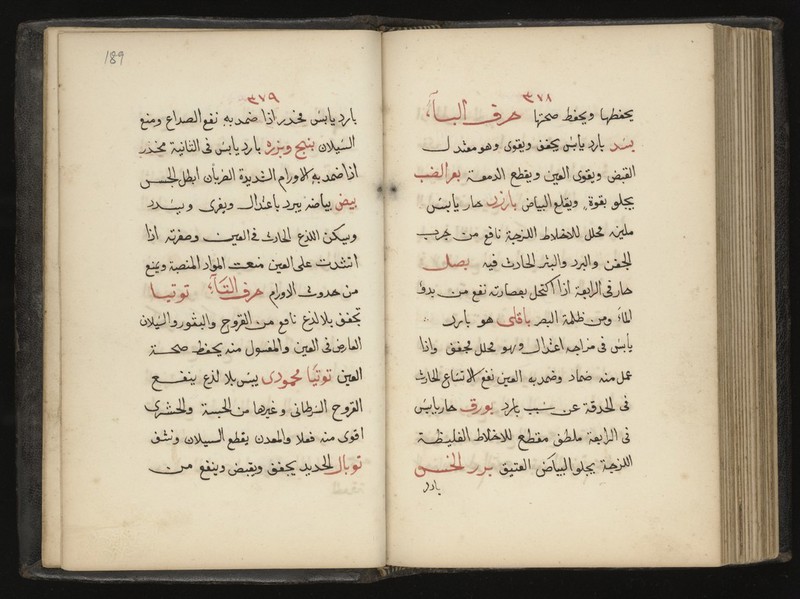 ٣٧٨
يحفظها ويحفظ صحتها حرف الباء
بسد بارد يابس يجفف ويقوى وهو معتدل
القبض ويقوى العين ويقطع الدمعة بعر الضب
يجلو بقوة ويقلع البياض بارزد حار يابس
ملين محلل للاخلاط اللزجة نافع من جرب
الجفن والبرد والبثر الحادث فيه بصل
حار فى الرابعة اذا اكتحل بعصارته نفع من بدو
الماء ومن ظلمة البصر باقلى هو بارد
يابس فى مزاجه اعتدال وهو محلل مجفف واذا
عمل منه ضماد وضمد به العين نفع الاتساع الحادث
فى الحدقة عن سبب بارد بورق حار يابس
فى الرابعة ملطف مقطع للاخلاط الغليظة
اللزجة يجلو البياض العتيق بزر الخس
بارد
189
٣٧٩
بارد يابس مخدر اذا ضمد به نفع الصداع ومنع
السيلان بنج وبزره بارد يابس فى الثانية مخدر
اذا ضمد به الاورام الشديدة الضربان ابطل الحس
بيض بياضه يبرد باعتدال ويغرى ويسدد
ويسكن اللذع الحادث فى العين وصفرته اذا
على العين منعت المواد المنصبة ويمنع
من حدوث الاورام حرف التاء توتيا
تجفف بلا لذع نافع من القروح والبثور والسيلان
العارض فى العين والمغسول منه يحفظ صحة
العين توتيا محمودى يبس بلا لذع ينفع
القروح السرطانى وغيرها من الخبيثة والحشرى
اقوى منه فعلا والمعدن يقطع السيلان ونشف
توبال الحديد يجفف ويقبض وينفع من